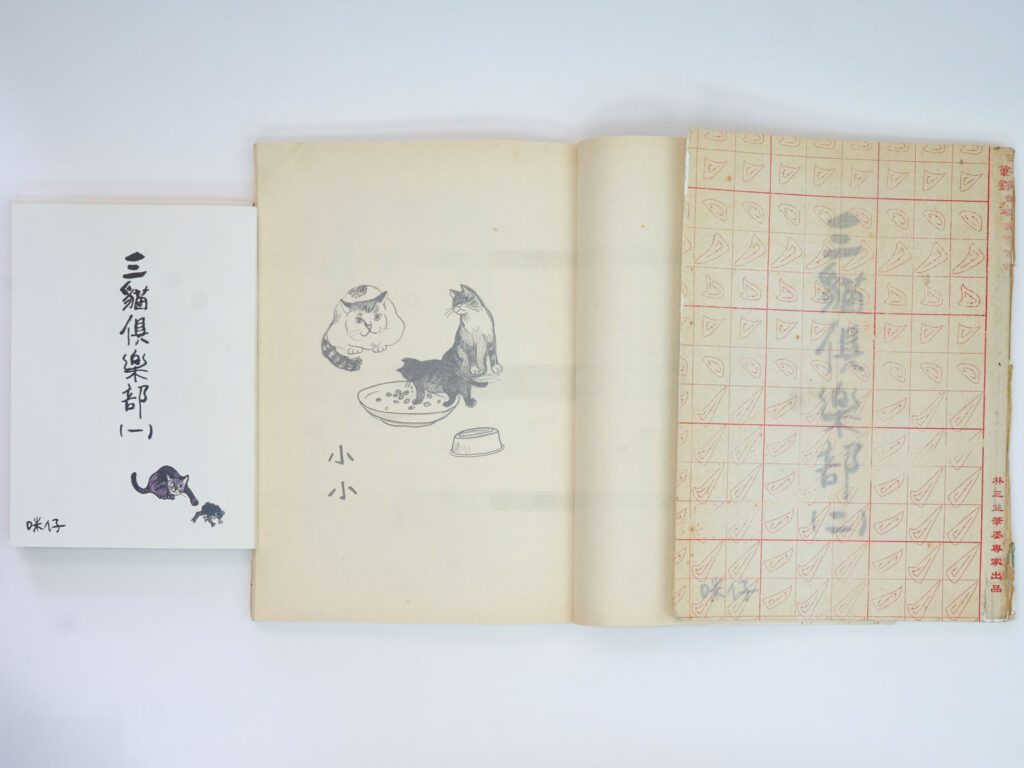 三貓俱樂部
(一)
咪仔
小小
三貓俱樂部
(二)
咪仔
林三益筆墨專家出品